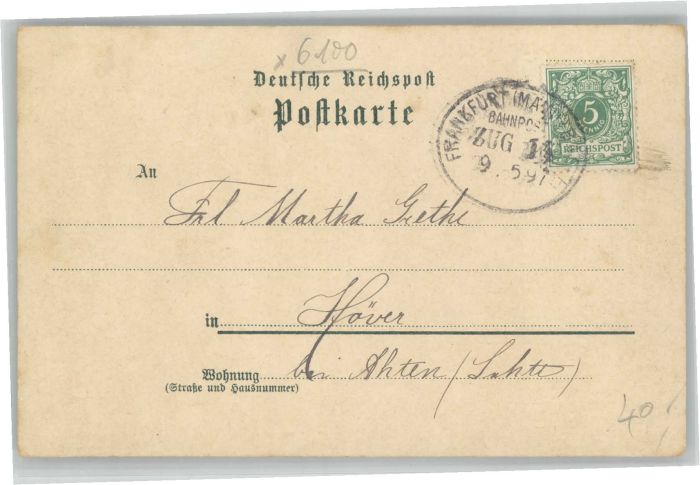 x 6100
Deutsche Reichspost
Postkarte
FRANKFURT (MAIN)
BAHNPOST
ZUG
9. 5.97
5
PFENNIG
REICHSPOST
An
Frl Martha Grethe
in Höver
Wohnung bei Ahlten (Lehrte)
(Straße und Hausnummer)
40,